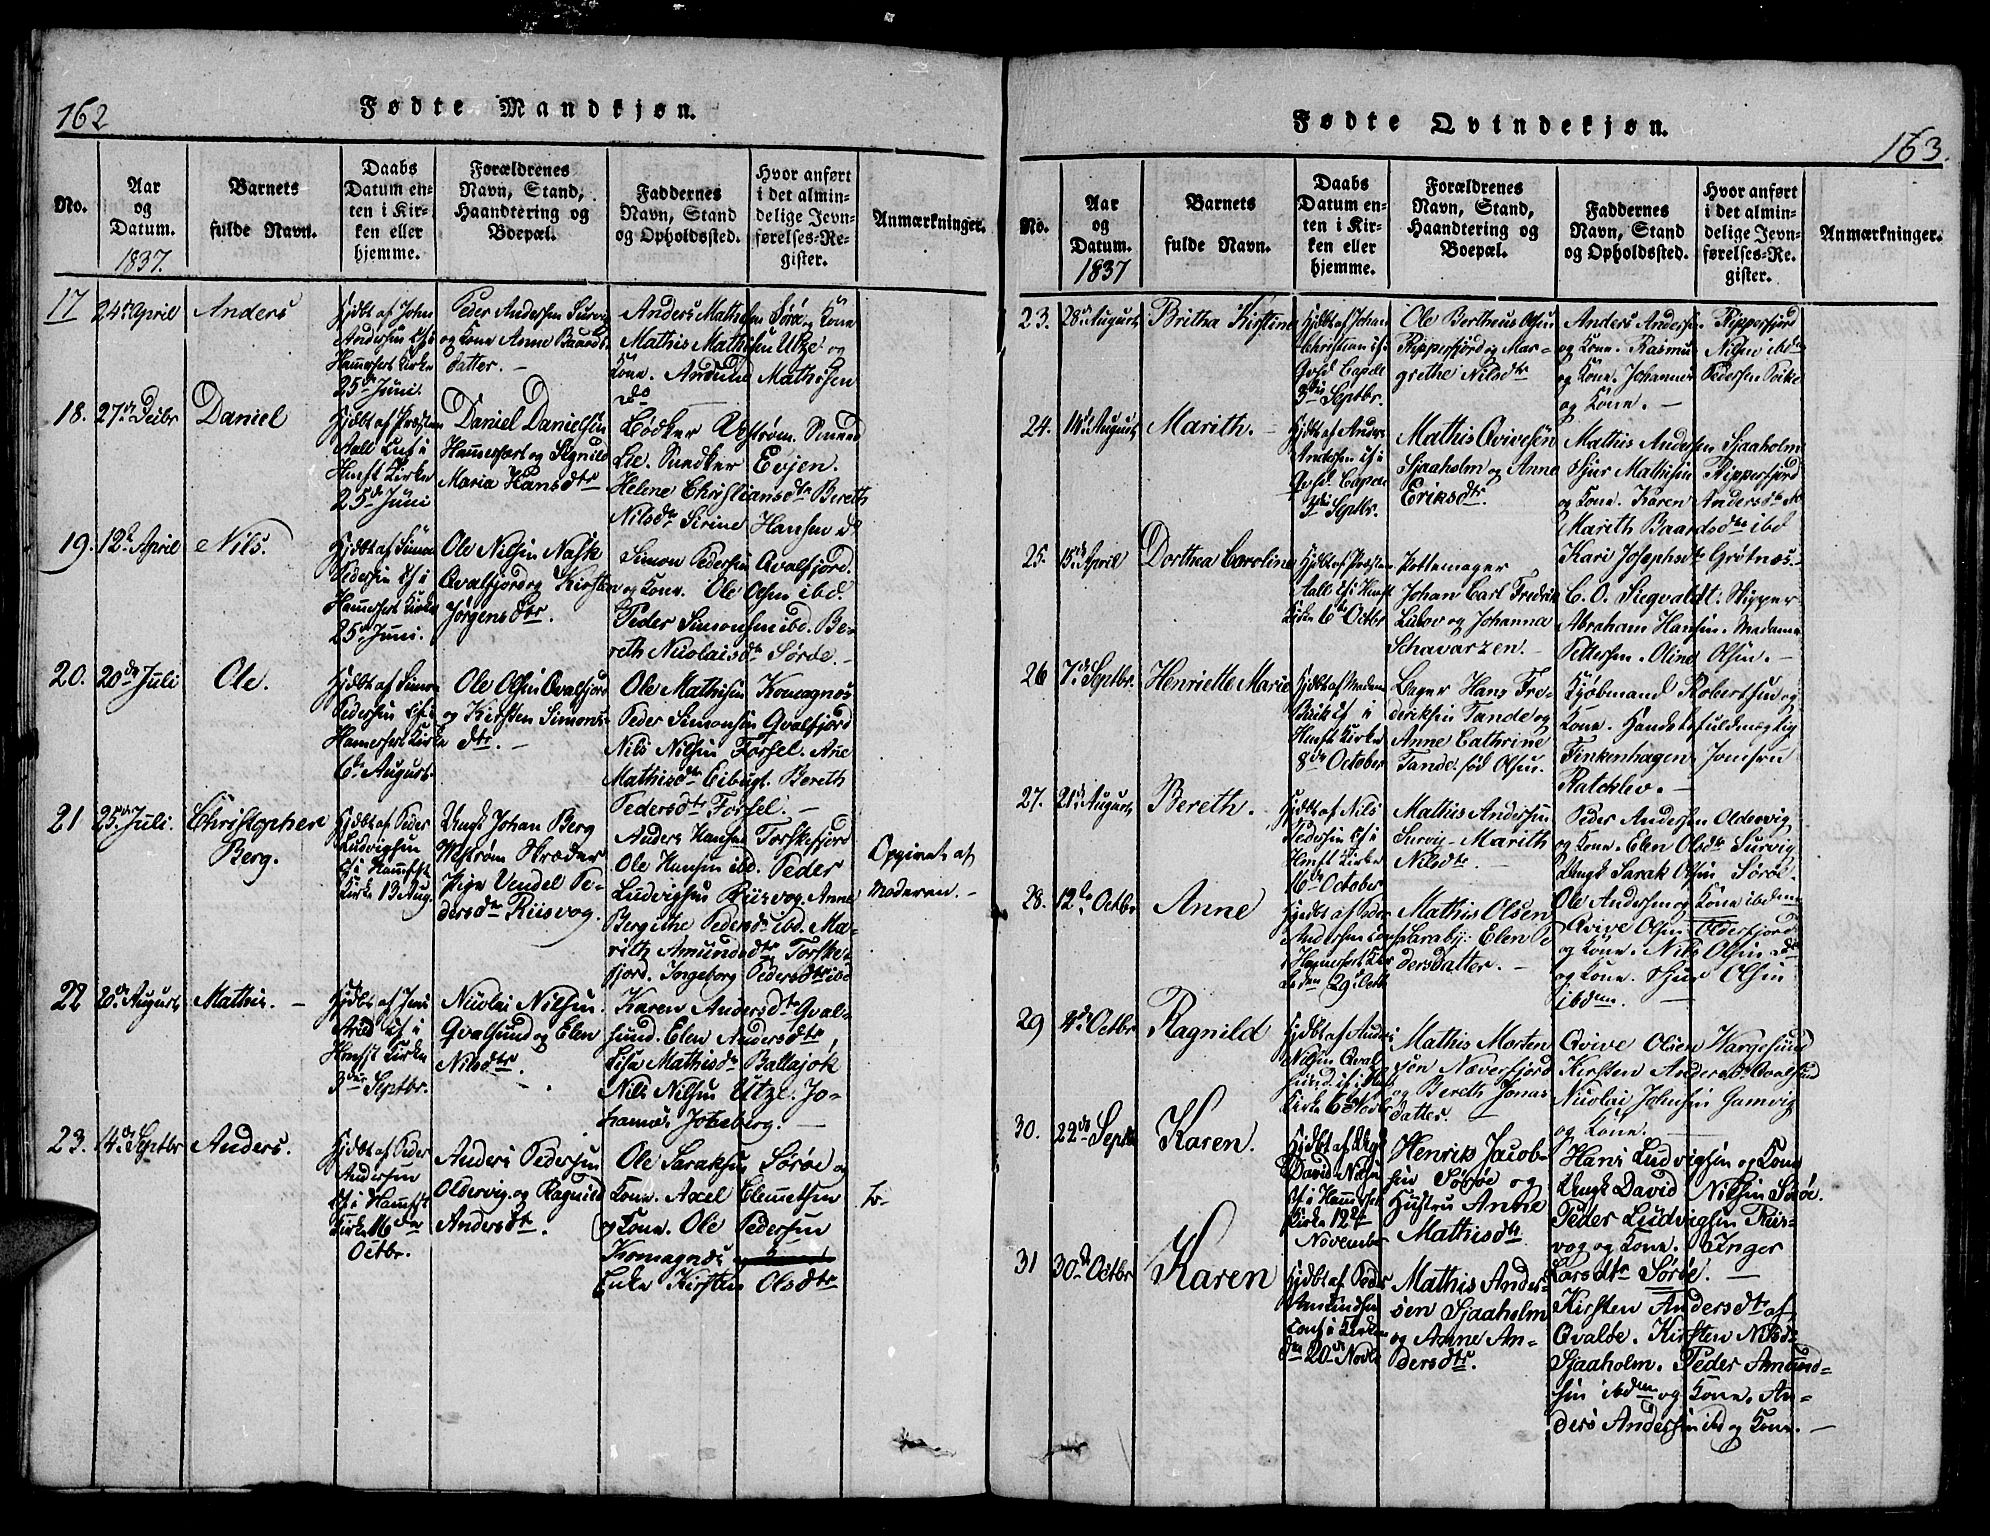 162
Fødte Mandkjøn.
No.
Aar
og
Datum.
1837.
Barnets
fulde Navn.
Daabs
Datum en-
ten i Kir-
ken eller
hjemme.
Forældrenes
Navn, Stand,
Haandtering og
Boepæl.
Faddernes
Navn, Stand
og Opholdssted.
Hvor anført
i det almin-
delige Jevn-
førelses-Re-
gister.
Anmærkninger.
17
24de April
Anders
Hjdbt af John
Andersen
Hammerfest Kirke
25de Juni.
Peder Andersen Survig
og Kone Anne Baards-
datter. -
Anders Mathisen Sørø og Kone
Mathis Mathisen Utze og
Kone. Amund Mathisen
18.
27de Debr
Daniel
Hjdbt af Præsten
Aall
Hmfst Kirke
25de Juni
Daniel Danielsen
Hammerfest og Signild
Maria Hansdtr
Bødker
Lie. Snedker Evjen.
Helene Christiansdtr Bereth
Nilsdtr Sirine Hansen
19.
12te April
Nils.
Hjdbt af Simon
Pedersen
Hammerfest Kirke
25de Juni.
Ole Nilsen
Qvalfjord og Kirsten
Jørgensdtr.
Simon Pedersen Qvalfjord.
og Kone. Ole Olsen ibd.
Peder Simonsen ibd. Be-
reth Nicolaisdtr Sørøe. -
20.
20de Juli
Ole.
Hjdbt af Simon
Pedersen
Hammerfest Kirke
6te August.
Ole Olsen Qvalfjord
og Kirsten Simons-
dtr. -
Ole Mathisen Komagnes
Peder Simonsen Qvalfjord
Nils Nilsen Forsøl. Ane
Mathisdtr Eibugt. Bereth
Pedersdtr Forsøl. -
21
25de Juli.
Christopher
Berg.
Hjdbt af Peder
Ludvigsen
i Hammfst
Kirke 13 Aug.
Ungk Johan Berg
Skræder
Pige Vendel Pe-
dersdtr Riisvog.
Anders Hansen Torskefjord
Ole Hansen ibd. Peder
Ludvigsen Riisvog. Anne
Bergithe Pedersdtr ibd. Ma-
rith Amundsdtr Torske-
fjord. Ingeborg Pedersdtr ibd
Opgivet af
Moderen. -
22
2den August
Mathis. -
Hjdbt af Jens
Hmfst Kirke
3die Septbr.
Nicolai Nilsen
Qvalsund og Elen
Nilsdtr.
Karen Andersdtr Qval-
sund. Elen Andersdtr
Lisa Mathisdtr Ballajok
Nils Nilsen Utze. Jo-
hannes
23.
14de Septbr
Anders.
Hjdbt af Peder
Andersen
i Hammfst
Kirke 16de
Octbr.
Anders Pedersen
Oldervig. og Ragnild
Andersdtr.
Ole Saraksen Sørøe og
Kone. Axel Clemetsen
og Kone. Ole Pedersen
Komagnes
Enke Kirsten Olsdtr
163.
Fødte Qvindekjøn.
No.
Aar
og
Datum.
1837
Barnets
fulde Navn.
Daabs
Datum en-
ten i Kir-
ken eller
hjemme.
Forældrenes
Navn, Stand,
Haandtering og
Boepæl.
Faddernes
Navn, Stand
og Opholdssted.
Hvor anført
i det almin-
delige Jevn-
førelses-Re-
gister.
Anmærkninger.
23.
28de August
Britha Kirstine
Hjdbt af Johan
Christian
Capele
3die Septbr.
Ole Bertheus Olsen
Ripperfjord og Mar-
grethe Nilsdtr
Anders Andersen Ripperfjord
og Kone. Rasmus Nilsen ibdm
og Kone. Johannes Pedersen
og Kone. -
24.
14de August
Marith. -
Hjdbt af Anders
Andersen
3die Septbr.
Mathis Qvivesen
Sjaaholm og Anne
Eriksdtr.
Mathis Andersen Sjaaholm
Sjur Mathisen Ripperfjord
og Kone. Karen Andersdtr
Marith Baardsdtr ibd
25.
15de April
Dorthea Caroline
Hjdbt af Præsten
Aall Hmfst
Kirke 6te Octbr
Pottemager
Johan Carl Fredrik
og Johanna
Schavarzen. -
Kari Josephsdtr Grøtnæs. -
C. O. Siegvaldt. Skipper
Abraham Hansen. Madame
Pettersen. Oline Olsen. -
26
7de Septbr.
Henriette Marie
Hjdbt af Madam
Hmfst Kirke
8de October
Bager Hans Fre-
deriksen Tande og
Anne Cathrine
Tande. fød Olsen.
Kjøbmand Robertsen og
Kone. Handelsfuldmægtig
Finkenhagen. Jomfru
Ratchlev. -
27.
21de August
Bereth. -
Hjdbt af Nils
Pedersen
Hmfst Kirke
16de October
Mathis Andersen
Survig - Marith
Nilsdtr.
Peder Andersen Oldervig
og Kone. Elen Olsdtr Survig
Ungk Sarak Olsen Sørøe.
28.
12te Octbr
Anne
Hjdbt af Peder
Andersen
i Hammerfest Kirke
den 29 Octb
Mathis Olsen
Saraby. Elen Pe
dersdatter. -
Ole Andersen og Kone ibdm
Qvive Olsen Pedersfjord
og Kone. Nils Olsen
og Kone. Sjur Olsen
ibdem.
29
4de Octbr
Ragnild
Hjdbt af Anders
Nilsen Qval-
sund
Kirke 6 Novbr
Mathis Morten
sen Næverfjord
og Bereth Jonas
datter. -
Qvive Olsen Wargesund
Kirsten Andersdtr Qvalsund
Nicolai Johnsen Gamvig
og Kone. -
30.
22de Septbr
Karen.
Hjdbt af Ungk
David Nilsen
i Hammerfest
Kirke 12te
November
Henrik Jacob-
sen Sørøe og
Hustru Anne
Mathisdtr
Hans Ludvigsen og Kone
Ungk David Nilsen Sørøe.
Peder Ludvigsen Riis-
vog og Kone. Inger
Larsdtr Sørøe. -
31
30de Octbr
Karen
Hjdbt af Peder
Amundsen
Conf i Kirken
den 20de Novbr
Mathis Ander-
sen Sjaaholm
og Anne An-
dersdtr.
Kirsten Andersdtr af
Qvaløe. Kirsten Nilsdtr
Sjaaholm. Peder Amund-
sen ibdem og Kone. An-
ders Andersen ibd og Kone. -